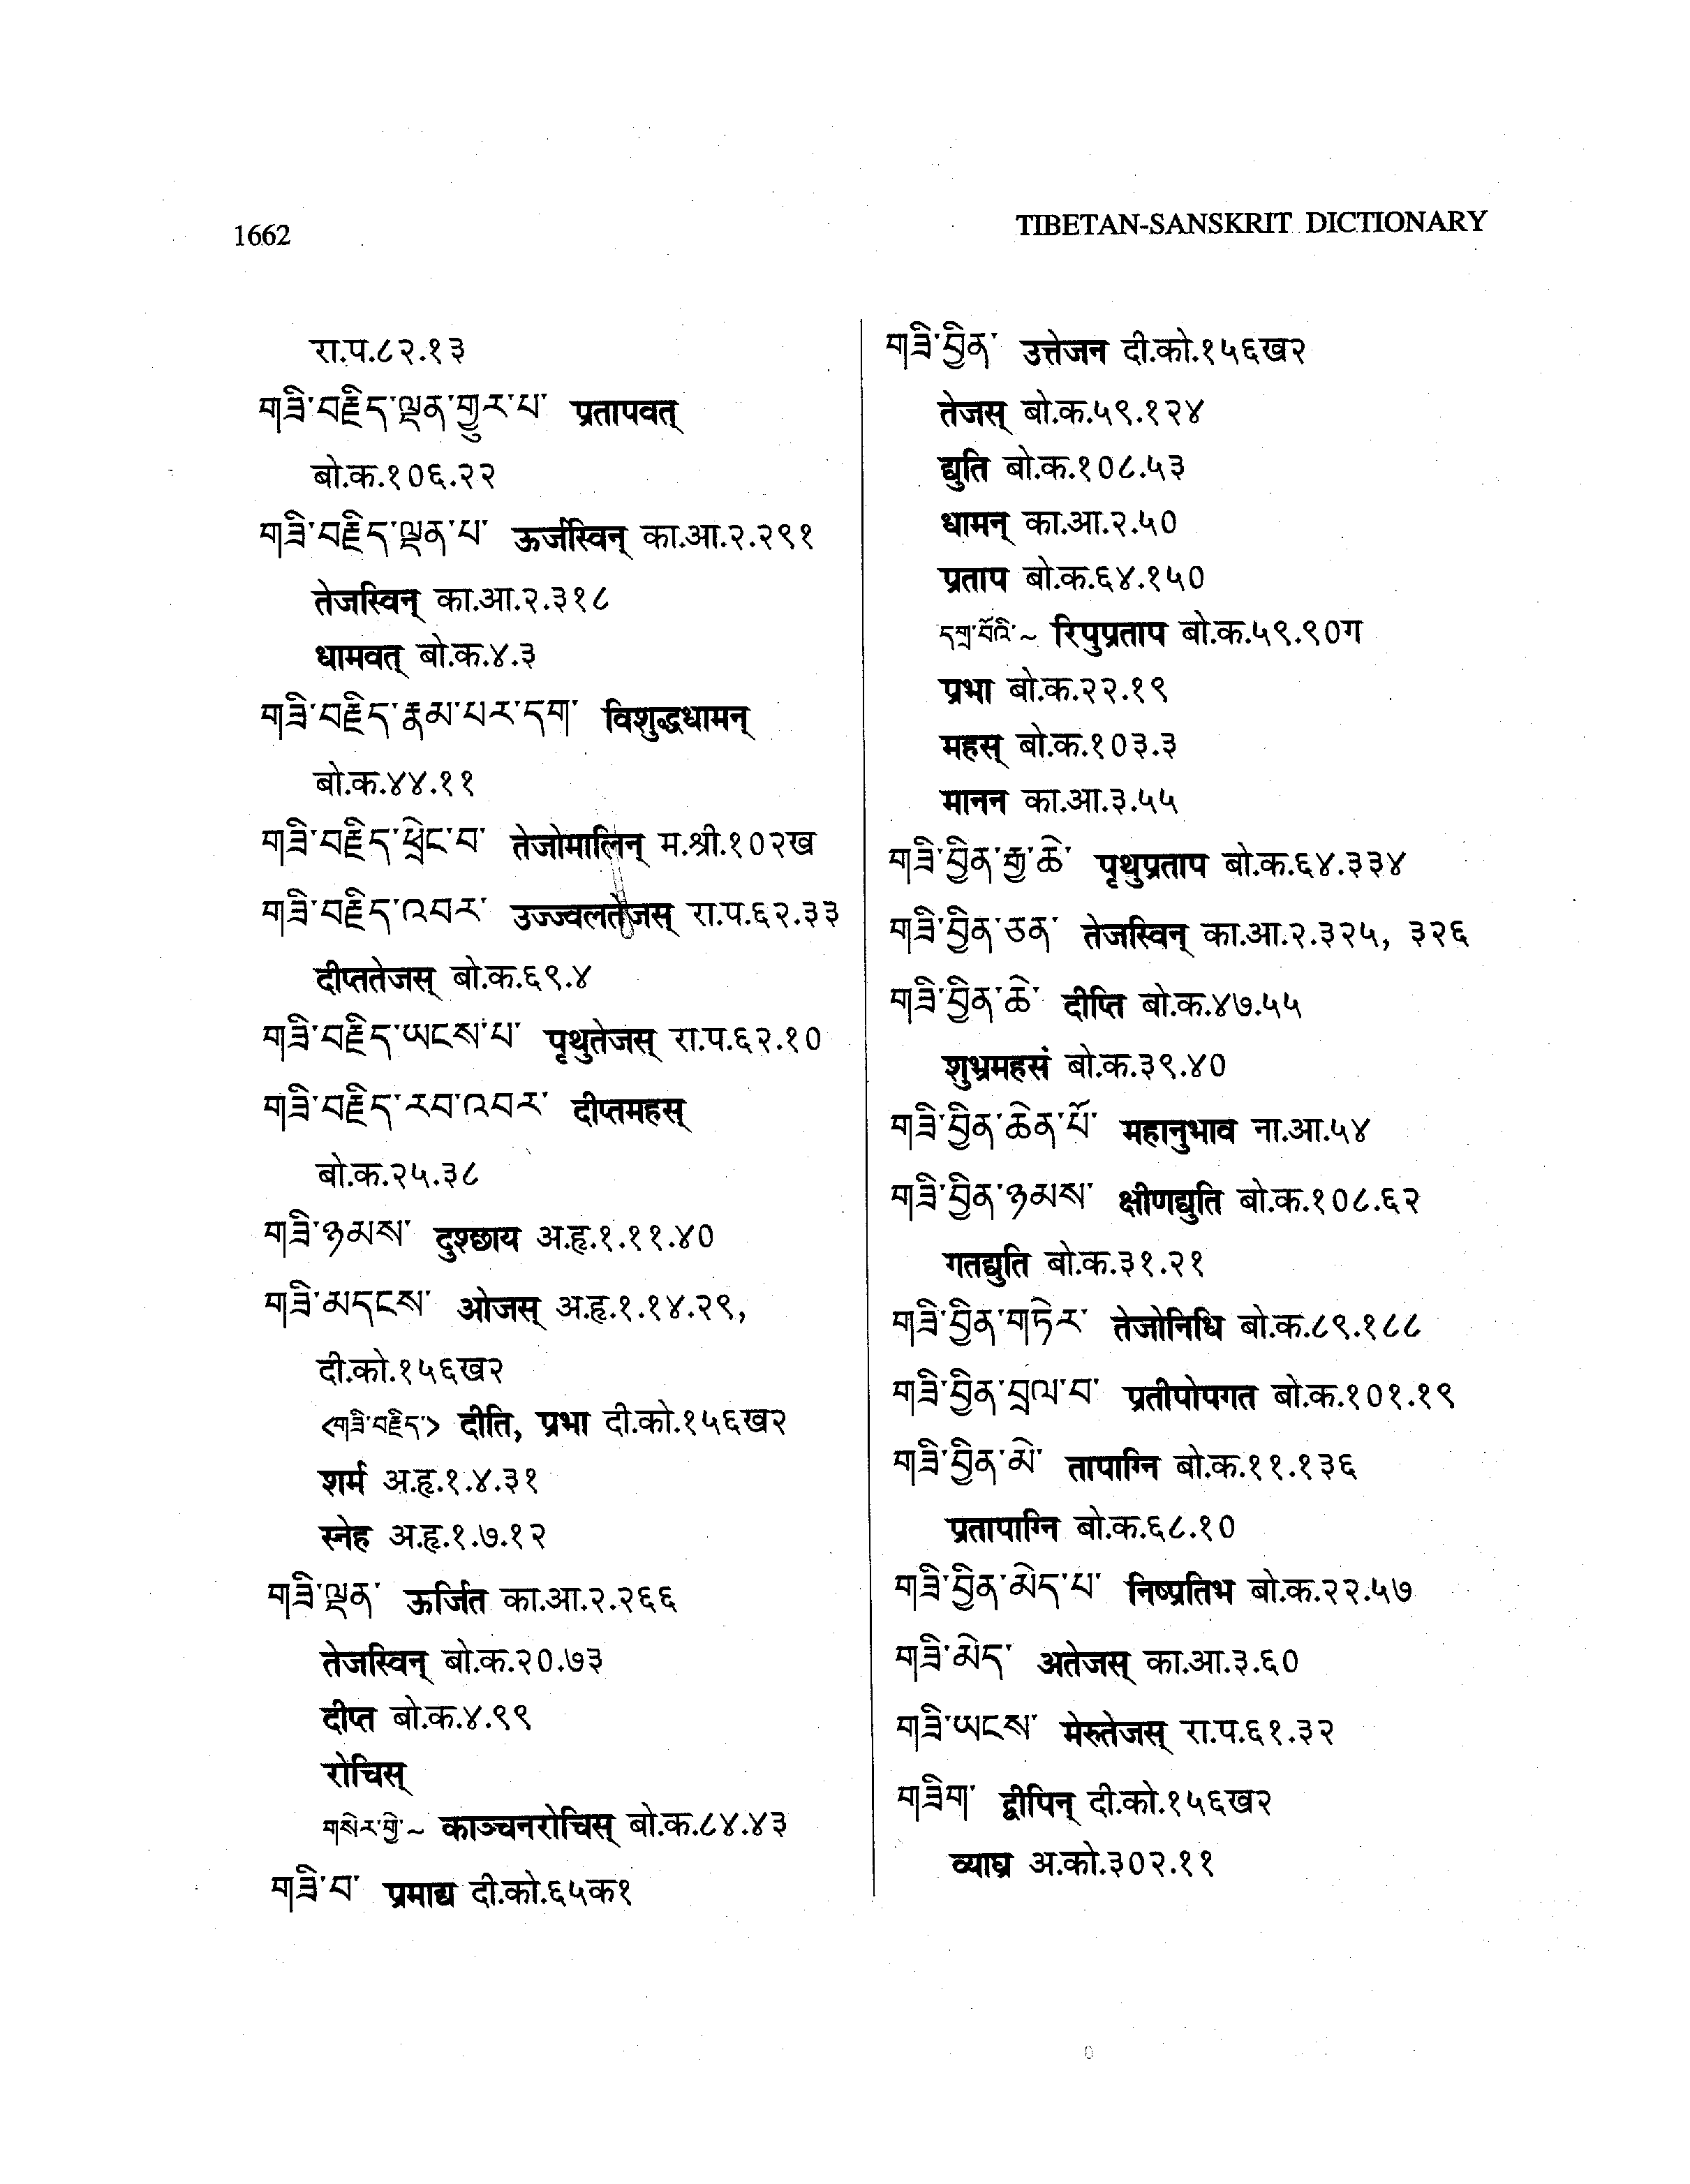 1662
TIBETAN-SANSKRIT DICTIONARY
रा.प.८२.१३
གཟི་བརྗིད་ལྡན་གྱུར་པ་ प्रतापवत्
बो.क.१०६.२२
གཟི་བརྗིད་ལྡན་པ་ ऊर्जस्विन् का.आ.२.२९१
तेजस्विन् का.आ.२.३१८
धामवत् बो.क.४.३
གཟི་བརྗིད་རྣམ་པར་དག་ विशुद्धधामन्
बो.क.४४.११
གཟི་བརྗིད་ཕྲེང་བ་ तेजोमालिन् म.श्री.१०२ख
གཟི་བརྗིད་འབར་ उज्ज्वलतेजस् रा.प.६२.३३
दीप्ततेजस् बो.क.६९.४
གཟི་བརྗིད་ཡངས་པ་ पृथुतेजस् रा.प.६२.१०
གཟི་བརྗིད་རབ་འབར་ दीप्तमहस्
बो.क.२५.३८
གཟི་ཉམས་ दुश्छाय अ.हृ.१.११.४०
གཟི་མདངས་ ओजस् अ.हृ.१.१४.२९,
दी.को.१५६ख२
<གཟི་བརྗིད་> दीति, प्रभा दी.को.१५६ख२
शर्म अ.हृ.१.४.३१
स्नेह अ.हृ.१.७.१२
གཟི་ལྡན་ ऊर्जित का.आ.२.२६६
तेजस्विन् बो.क.२०.७३
दीप्त बो.क.४.९९
रोचिस्
གསེར་གྱི་~ काञ्चनरोचिस् बो.क.८४.४३
གཟི་བ་ प्रमाद्य दी.को.६५क१
གཟི་བྱིན་ उत्तेजन दी.को.१५६ख२
तेजस् बो.क.५९.१२४
द्युति बो.क.१०८.५३
धामन् का.आ.२.५०
प्रताप बो.क.६४.१५०
དགྲ་བོའི་~ रिपुप्रताप बो.क.५९.९०ग
प्रभा बो.क.२२.१९
महस् बो.क.१०३.३
मानन का.आ.३.५५
གཟི་བྱིན་རྒྱ་ཆེ་ पृथुप्रताप बो.क.६४.३३४
གཟི་བྱིན་ཅན་ तेजस्विन् का.आ.२.३२५, ३२६
གཟི་བྱིན་ཆེ་ दीप्ति बो.क.४७.५५
शुभ्रमहसं बो.क.३९.४०
གཟི་བྱིན་ཆེན་པོ་ महानुभाव ना.आ.५४
གཟི་བྱིན་ཉམས་ क्षीणद्युति बो.क.१०८.६२
गतद्युति बो.क.३१.२१
གཟི་བྱིན་གཏེར་ तेजोनिधि बो.क.८९.१८८
གཟི་བྱིན་བྲལ་བ་ प्रतीपोपगत बो.क.१०१.१९
གཟི་བྱིན་མེ་ तापाग्नि बो.क.११.१३६
प्रतापाग्नि बो.क.६८.१०
གཟི་བྱིན་མེད་པ་ निष्प्रतिभ बो.क.२२.५७
གཟི་མེད་ अतेजस् का.आ.३.६०
གཟི་ཡངས་ मेरुतेजस् रा.प.६१.३२
གཟིག་ द्वीपिन् दी.को.१५६ख२
व्याघ्र अ.को.३०२.११